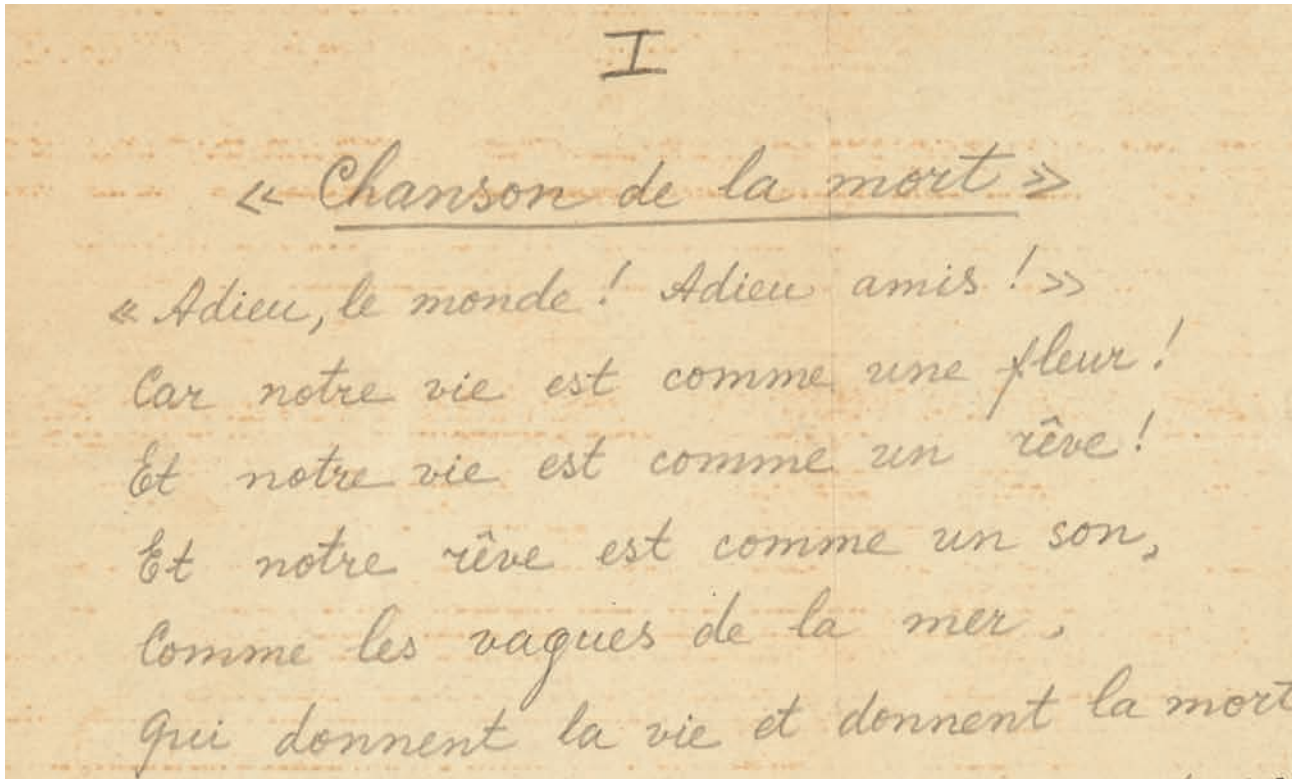 I
« Chanson de la mort »
« Adieu, le monde ! Adieu amis ! »
Car notre vie est comme une fleur !
Et notre vie est comme un rêve !
Et notre rêve est comme un son,
Comme les vagues de la mer,
Qui donnent la vie et donnent la mort